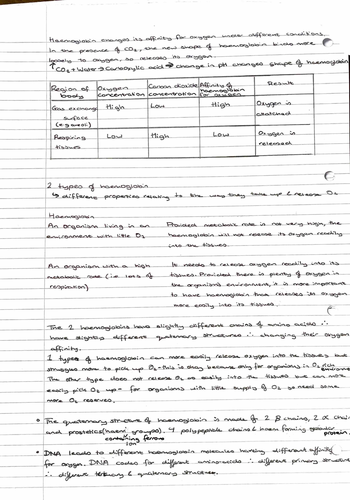 Haemoglobin changes its affinity for oxygen under different conditions.
In the presence of CO₂, the new shape of haemoglobin binds more
loosely to oxygen, so releases its oxygen.
↑CO₂ + Water → Carboxylic acid → change in pH changed shape of haemoglobin
Region of body | Oxygen concentration | Carbon dioxide concentration | Affinity of haemoglobin for oxygen | Result
Gas exchange surface (e.g alveoli) | High | Low | High | Oxygen is attached
Respiring tissues | Low | High | Low | Oxygen is released
2 types of haemoglobin
↳ different properties relating to the way they take up & release O₂
Haemoglobin
An organism living in an environment with little O₂
Provided metabolic rate is not very high, the
haemoglobin will not release its oxygen readily
into the tissues.
An organism with a high metabolic rate (i.e lots of respiration)
to needs to release oxygen readily into its
tissues. Provided there is plenty of oxygen in
the organisms environment, it is more important
to have haemoglobin that releases its oxygen
more easily into its tissues.
The 2 haemoglobins have slightly different chains of amino acids ∴
have slightly different quaternary structures ∴ changing their oxygen
affinity.
1 types of haemoglobin can more easily release oxygen into the tissues but
struggles more to pick up O₂ - this is okay because only for organisms in O₂ rich environments
The other type does not release O₂ as easily into the tissues but can more
easily pick O₂ up - for organisms with little supply of O₂ so need some
more O₂ reserved.
• The quaternary structure of haemoglobin is made of 2 β chains, 2 α chains
and prosthetics (haem groups). 4 polypeptide chains & haem forming globular protein.
containing ferrous ion
• DNA leads to different haemoglobin molecules having different affinity
for oxygen. DNA codes for different amino acids ∴ different primary structure
∴ different tertiary & quaternary structures.